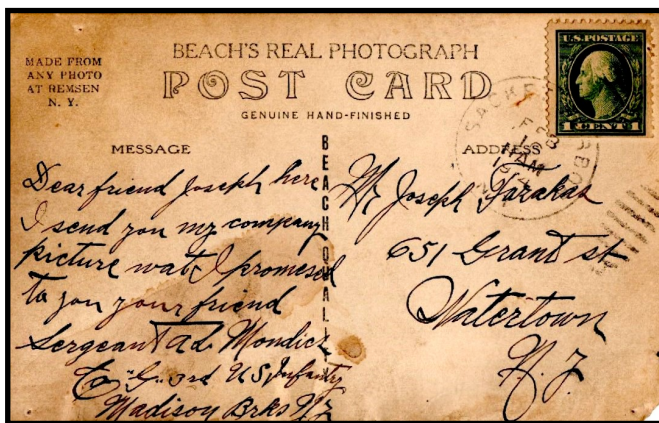 MADE FROM
ANY PHOTO
AT REMSEN
N. Y.
BEACH'S REAL PHOTOGRAPH
POST CARD
GENUINE HAND-FINISHED
U.S. POSTAGE
1 CENT 1
MESSAGE
ADDRESS
BEACH QUALITY
SACKE RBO
AM
Dear friend Joseph here
I send you my company
picture wat I promesed
to you your friend
Sergeant Ad. Mondick
Co "G" 3rd US Infantry
Madison Brks NY
Mr Joseph Farakas
651 Grant st
Watertown
N. Y.